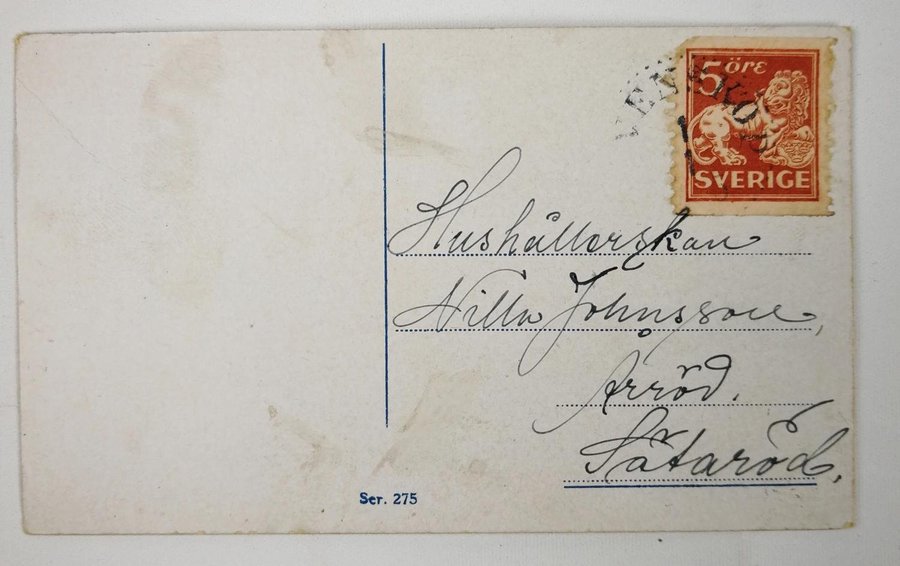 5 öre
SVERIGE
Hushållerskan
Nilla Johnsson,
Arröd.
Sätaröd.
Ser. 275